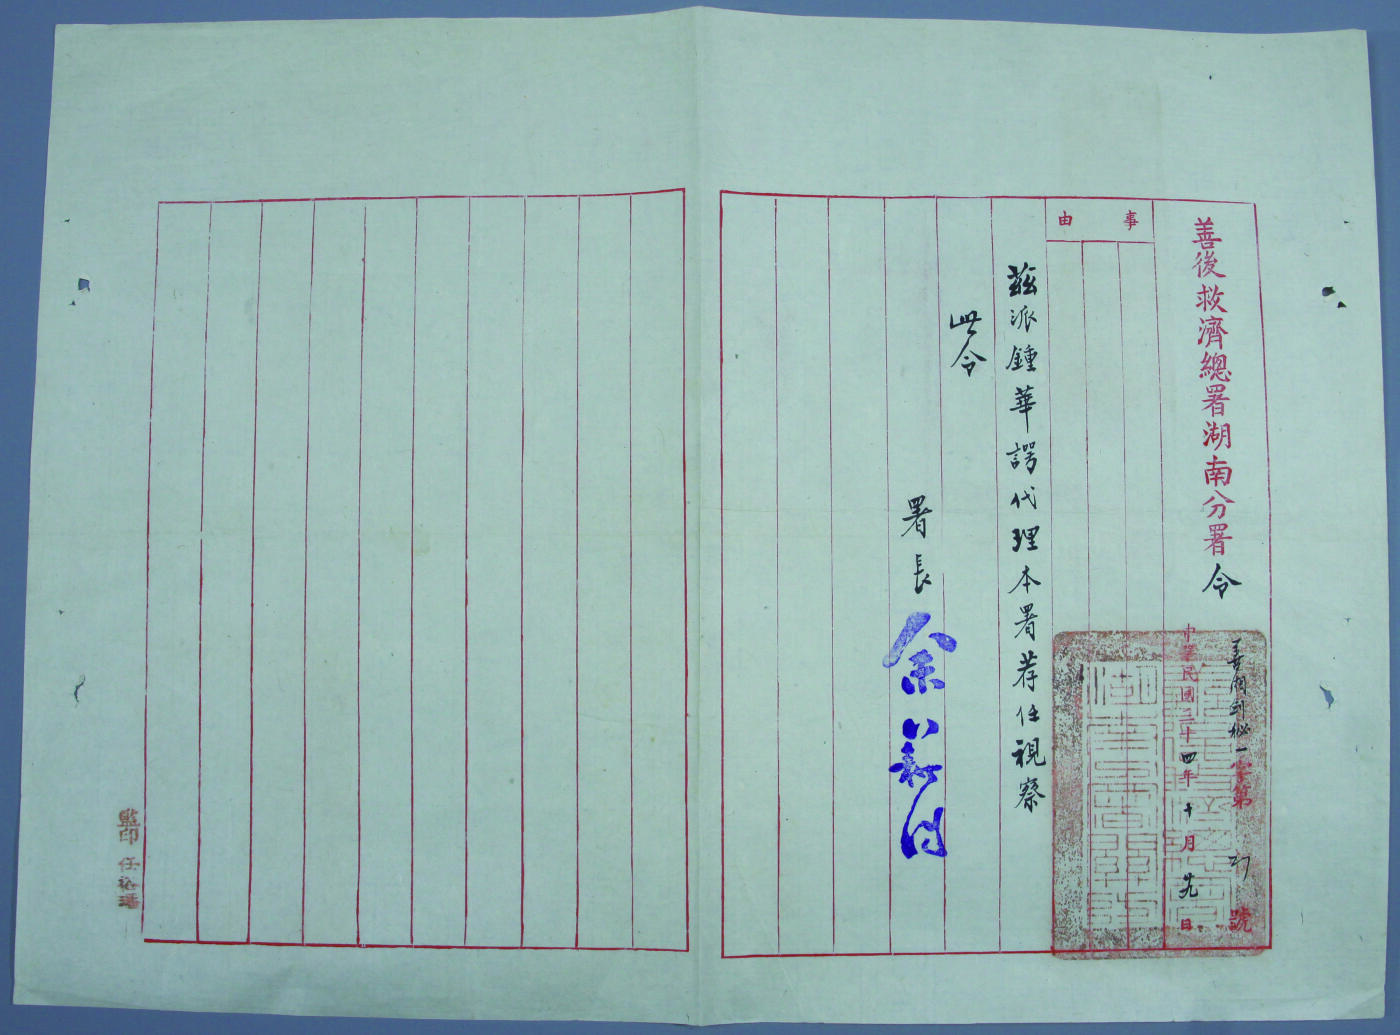 善後救濟總署湖南分署令
善湘 秘一字第 號
中華民國三十四年十月廿九日
事由
茲派鍾華諤代理本署荐任視察
此令
署長余籍傳
監印任